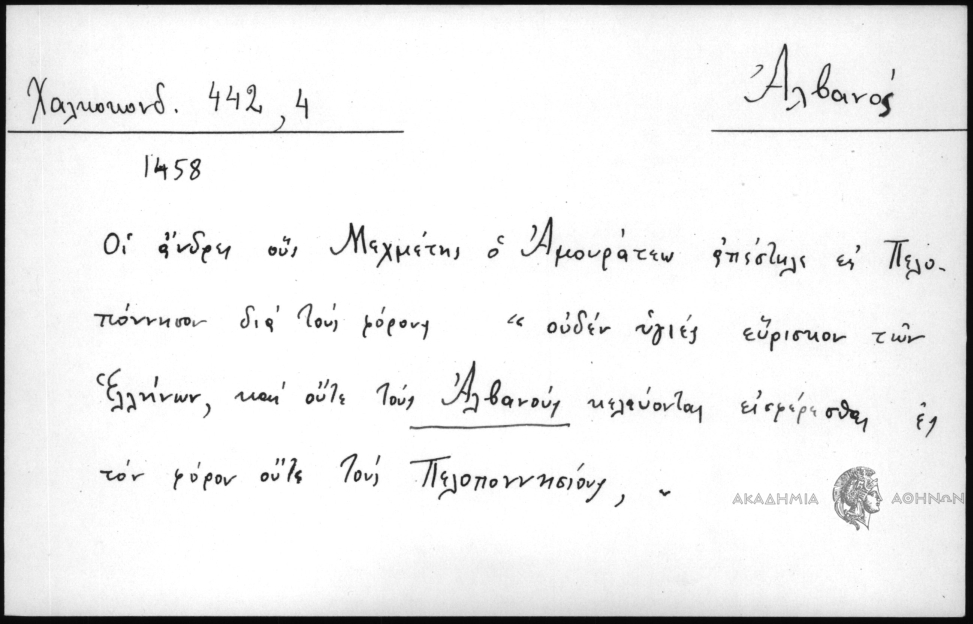 Χαλκοκονδ. 442, 4
Ἀλβανός
1458
Οἱ ἄνδρες οὓς Μεχμέτης ὁ Ἀμουράτεω ἀπέστειλε εἰς Πελο-
πόννησον διά τούς φόρους “ οὐδέν ὑγιές εὕρισκον τῶν
Ἑλλήνων, καί οὔτε τούς Ἀλβανούς κελεύονται εἰσφέρεσθαι ἐς
τόν φόρον οὔτε τούς Πελοποννησίους, „
ΑΚΑΔΗΜΙΑ ΑΘΗΝΩΝ